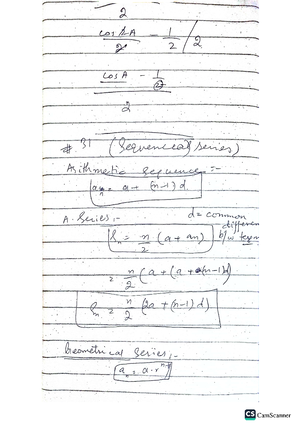 2
cos 2A/2 - 1/2 / 2
cos A - 1/2
2
# 31 (Sequence & series)
Arithmetic Sequence :-
an = a + (n-1) d
A. Series :- d = common
differen
b/w terms
Sn = n/2 (a + an)
= n/2 (a + (a + (n-1)d)
Sn = n/2 (2a + (n-1) d)
Geometrical Series :-
an = a.r^n-1
CS CamScanner